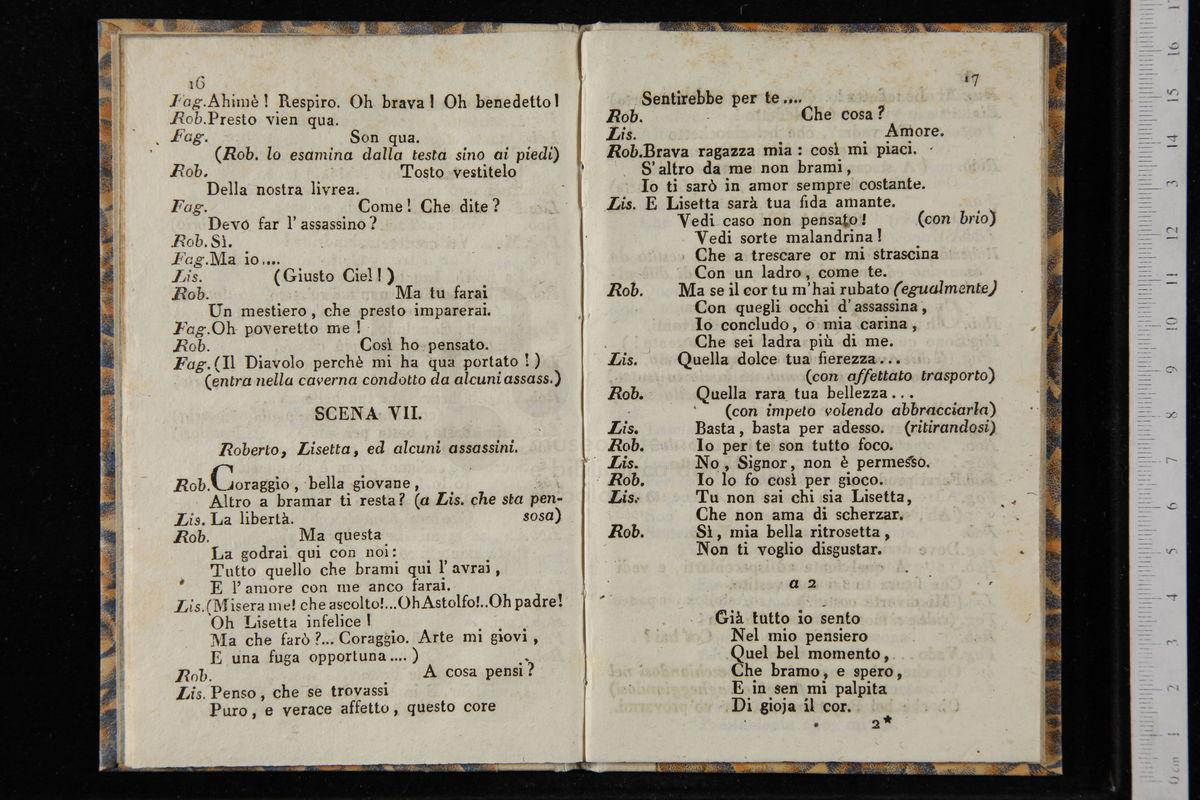 16
Fag. Ahimè! Respiro. Oh brava! Oh benedetto!
Rob. Presto vien qua.
Fag. Son qua.
(Rob. lo esamina dalla testa sino ai piedi)
Rob. Tosto vestitelo
Della nostra livrea.
Fag. Come! Che dite?
Devo far l'assassino?
Rob. Sì.
Fag. Ma io....
Lis. (Giusto Ciel!)
Rob. Ma tu farai
Un mestiero, che presto imparerai.
Fag. Oh poveretto me!
Rob. Così ho pensato.
Fag. (Il Diavolo perchè mi ha qua portato!)
(entra nella caverna condotto da alcuni assass.)
SCENA VII.
Roberto, Lisetta, ed alcuni assassini.
Rob. Coraggio, bella giovane,
Altro a bramar ti resta? (a Lis. che sta pen-
Lis. La libertà. sosa)
Rob. Ma questa
La godrai qui con noi:
Tutto quello che brami qui l'avrai,
E l'amore con me anco farai.
Lis. (Misera me! che ascolto!...Oh Astolfo!..Oh padre!
Oh Lisetta infelice!
Ma che farò?... Coraggio. Arte mi giovi,
E una fuga opportuna....)
Rob. A cosa pensi?
Lis. Penso, che se trovassi
Puro, e verace affetto, questo core
17
Sentirebbe per te....
Rob. Che cosa?
Lis. Amore.
Rob. Brava ragazza mia: così mi piaci.
S'altro da me non brami,
Io ti sarò in amor sempre costante.
Lis. E Lisetta sarà tua fida amante.
Vedi caso non pensato! (con brio)
Vedi sorte malandrina!
Che a trescare or mi strascina
Con un ladro, come te.
Rob. Ma se il cor tu m'hai rubato (egualmente)
Con quegli occhi d'assassina,
Io concludo, o mia carina,
Che sei ladra più di me.
Lis. Quella dolce tua fierezza...
(con affettato trasporto)
Rob. Quella rara tua bellezza...
(con impeto volendo abbracciarla)
Lis. Basta, basta per adesso. (ritirandosi)
Rob. Io per te son tutto foco.
Lis. No, Signor, non è permesso.
Rob. Io lo fo così per gioco.
Lis. Tu non sai chi sia Lisetta,
Che non ama di scherzar.
Rob. Sì, mia bella ritrosetta,
Non ti voglio disgustar.
a 2
Già tutto io sento
Nel mio pensiero
Quel bel momento,
Che bramo, e spero,
E in sen mi palpita
Di gioja il cor.
2*